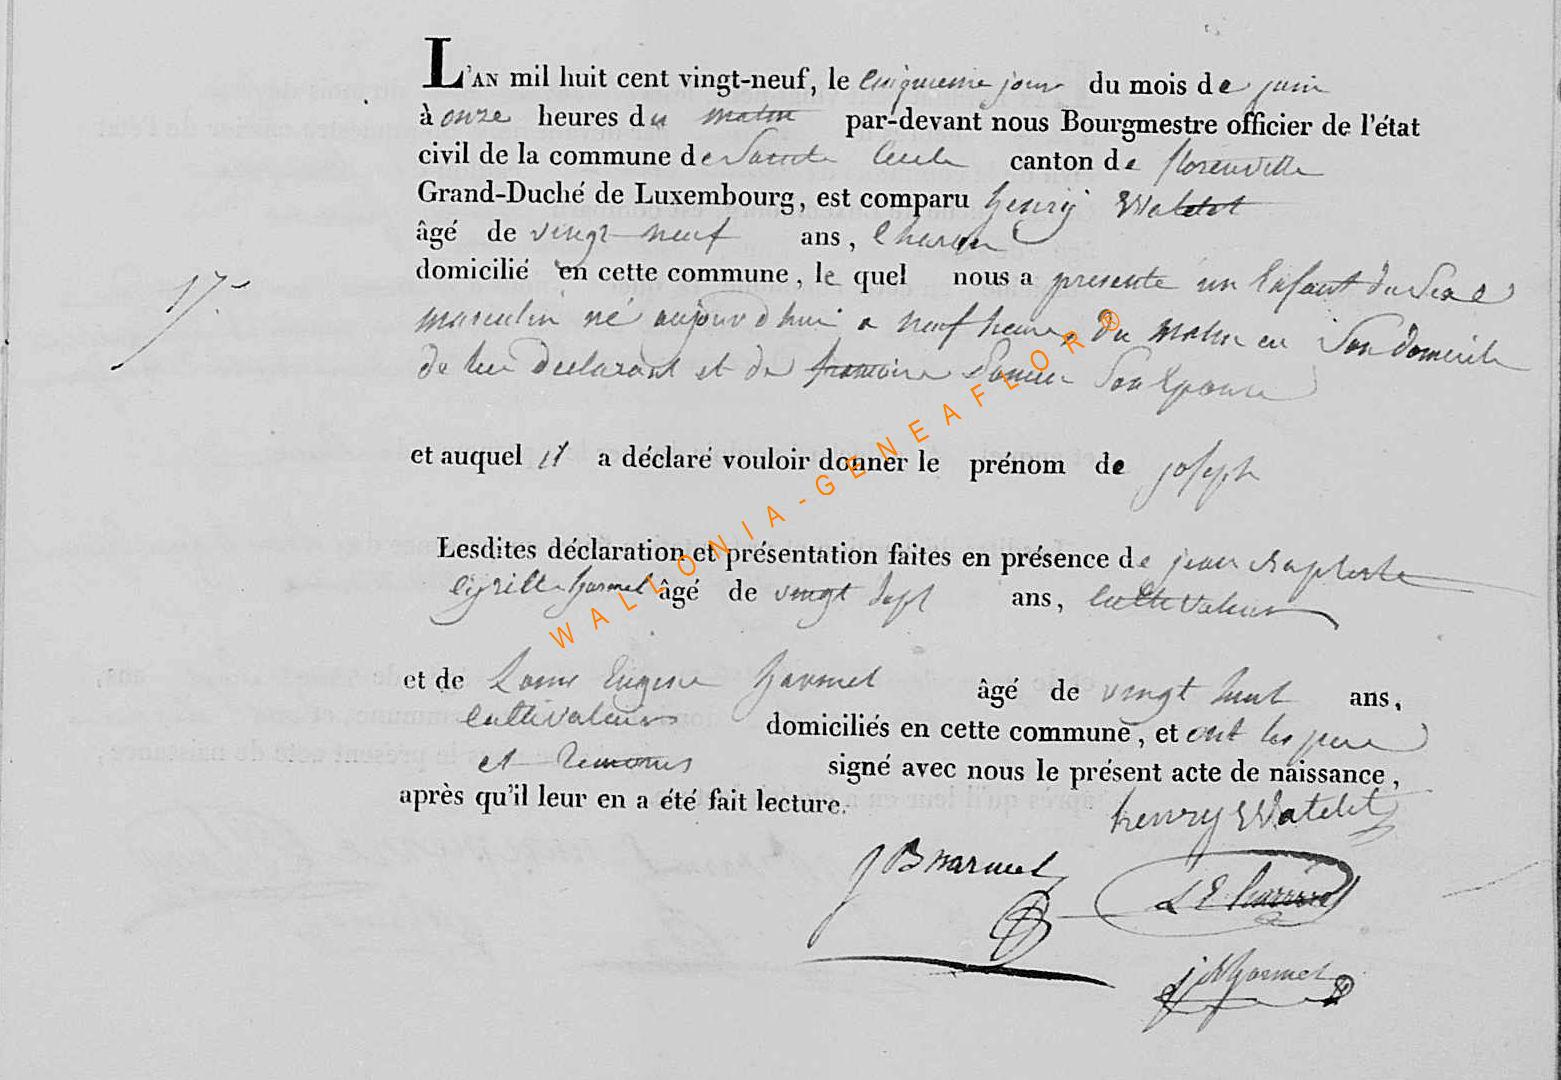 L'AN mil huit cent vingt-neuf, le cinquieme jour du mois de juin
à onze heures du matin par-devant nous Bourgmestre officier de l'état
civil de la commune de Sainte Cecile canton de florenville
Grand-Duché de Luxembourg, est comparu henry Watelet
âgé de vingt neuf ans, charon
domicilié en cette commune, le quel nous a presente un Enfant du Sexe
17.
masculin né aujourd'hui a neuf heures du matin en Son domicile
de lui declarant et de Son Epouse
et auquel il a déclaré vouloir donner le prénom de joseph
Lesdites déclaration et présentation faites en présence de jean Baptiste
Cyrille harmel âgé de vingt Sept ans, Cultivateur
et de Louis Eugene harmel âgé de vingt huit ans,
cultivateurs domiciliés en cette commune, et ont les pere
et temoins signé avec nous le présent acte de naissance,
après qu'il leur en a été fait lecture.
henry Watelet
J B harmel
L E harmel
harmel
WALLONIA-GENEAFLOR®